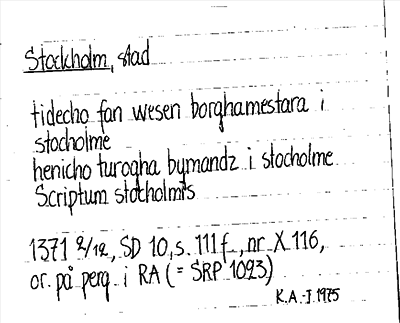 Stockholm, stad
tidecho fan wesen borghamestara i
stocholme
henicho turogha bymandz i stocholme
Scriptum stocholmis
1371 2/12, SD 10, s. 111 f., nr X 116,
or. på perg. i RA (= SRP 1093)
K.A.-J 1975